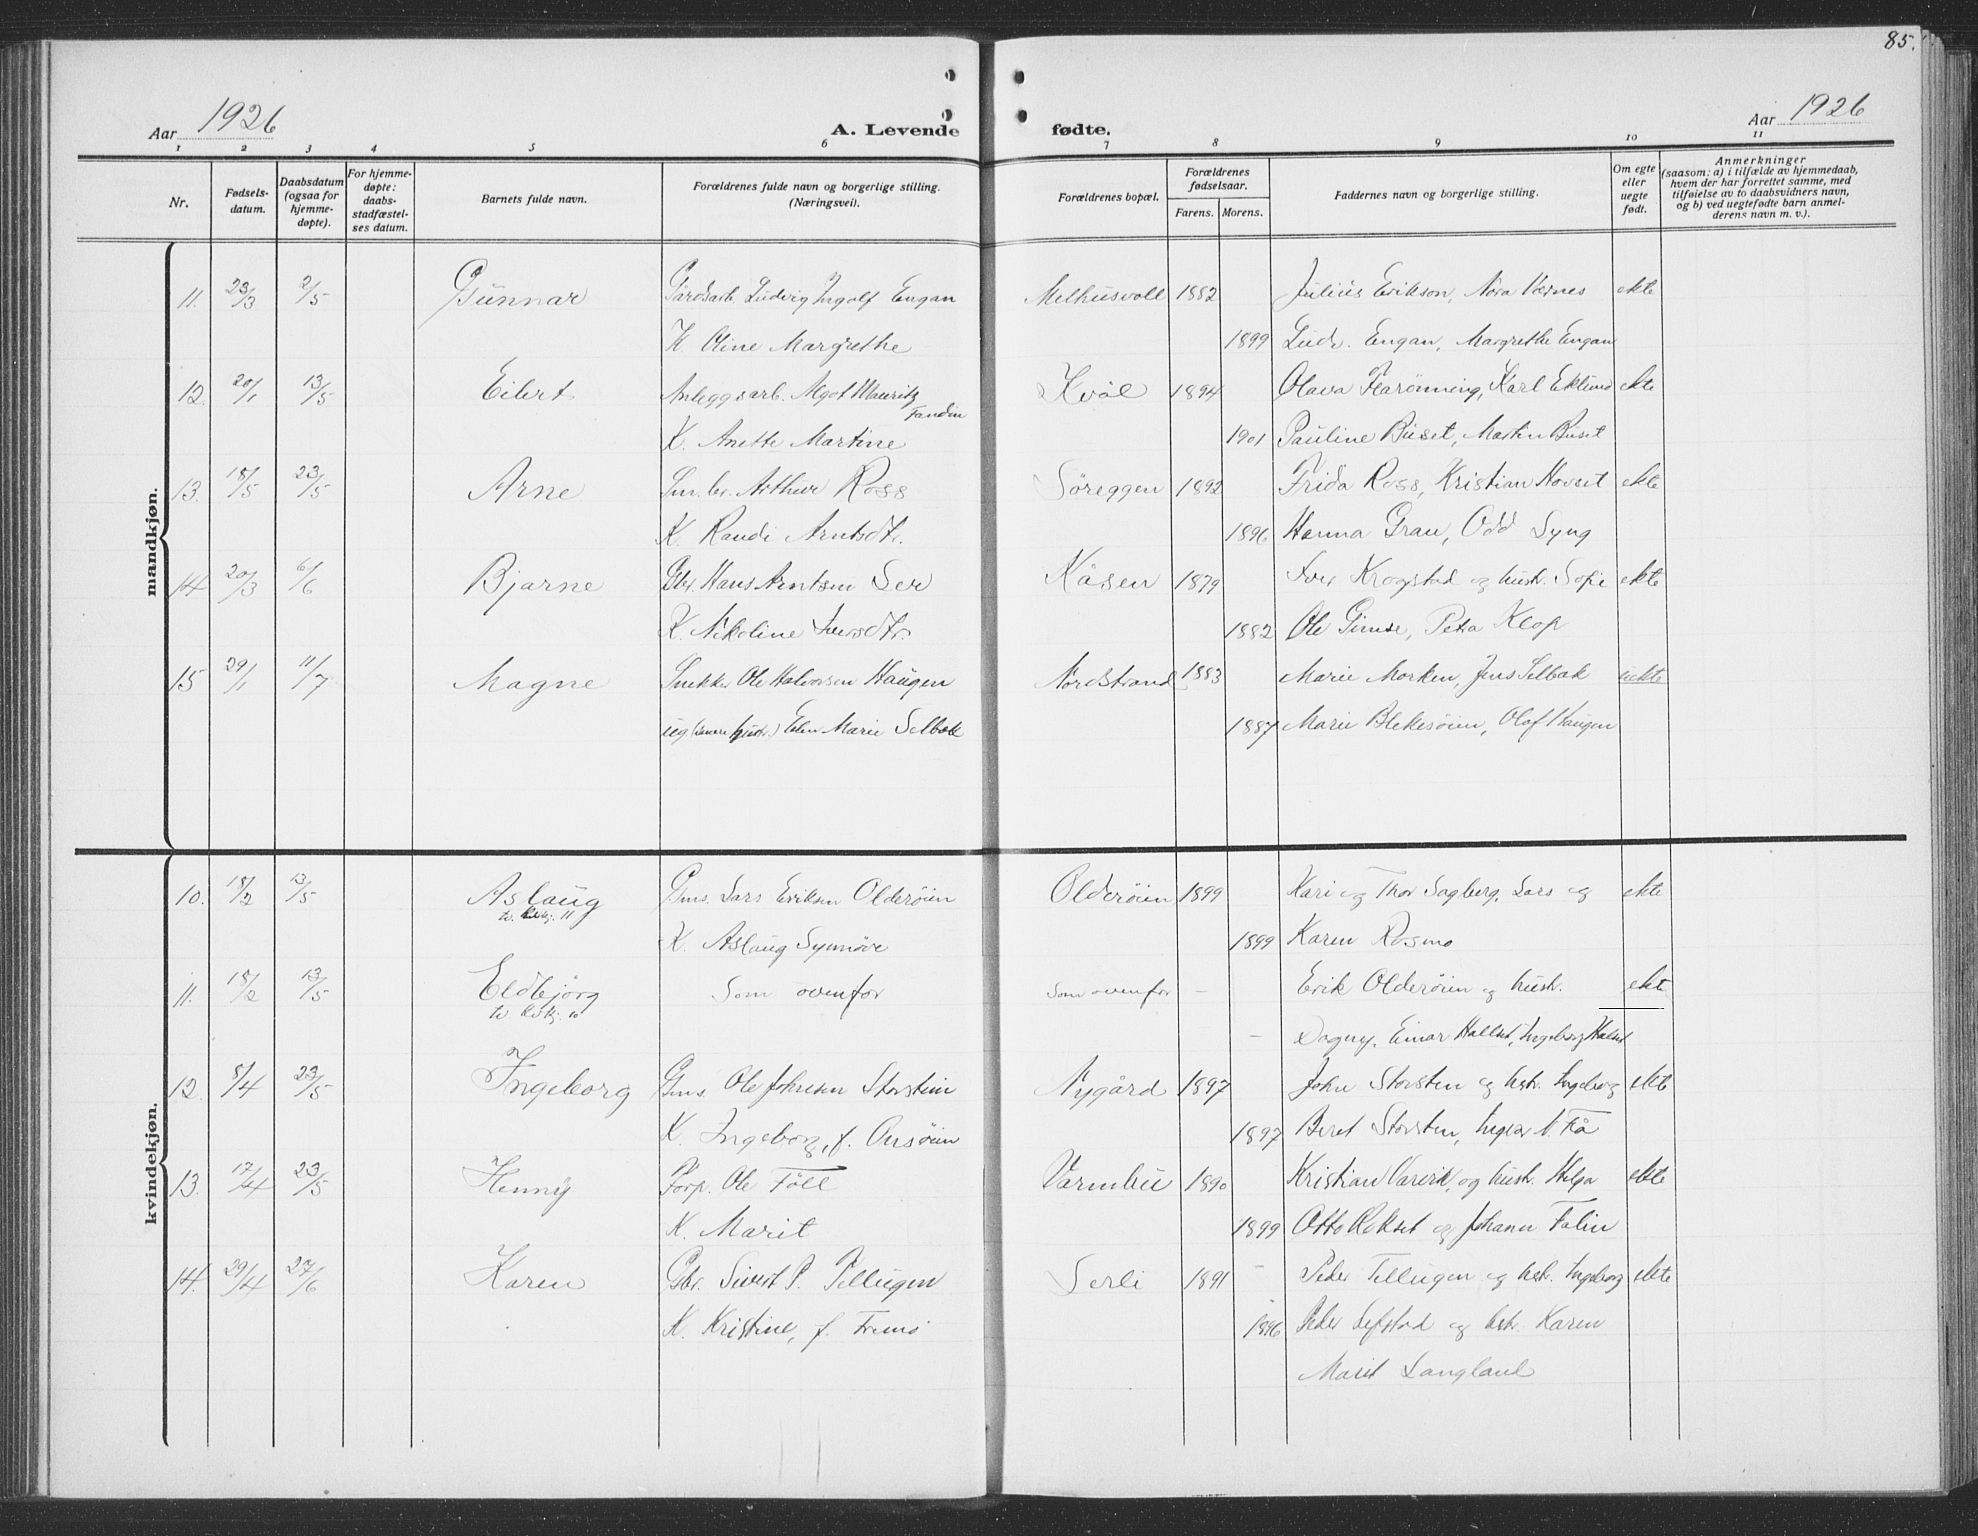 85.
Aar 1926 A. Levende fødte. Aar 1926
1 2 3 4 5 6 7 8 9 10 11
Nr. Fødsels-datum. Daabsdatum (ogsaa for hjemme-døpte). For hjemme-døpte: daabs-stadfæstel-ses datum. Barnets fulde navn. Forældrenes fulde navn og borgerlige stilling. (Næringsvei). Forældrenes bopæl. Forældrenes fødselsaar. Farens. Morens. Faddernes navn og borgerlige stilling. Om egte eller uegte født. Anmerkninger (saasom: a) i tilfælde av hjemmedaab, hvem der har forrettet samme, med tilføielse av to daabsvidners navn, og b) ved uegtefødte barn anmel-derens navn m. v.).
mandkjøn.
11. 23/3 2/5 Gunnar Gårdsarb. Ludvig Ingolf Engan Melhusvoll 1882 Julius Erikson, Nora Værnes ekte
K. Oline Margrethe 1899 Ludv. Engan, Margrethe Engan
12. 20/1 13/5 Eilert Anleggsarb. Agot Mauritz Kvål 1894 Olava Harønning, Karl Eklund ekte
Fandin
K. Anette Martine 1901 Pauline Buset, Martin Buset
13. 18/5 23/5 Arne Sm.br. Arthur Ross Søreggen 1892 Frida Ross, Kristian Hovset ekte
K. Randi Arntsdtr. 1896 Hanna Grau, Odd Syng
14 20/3 6/6 Bjarne Gbr. Hans Arntsen Ser Kåsen 1879 Iver Krogstad og hustr. Sofie ekte
K. Nikoline Iversdtr. 1882 Ole Gimse, Petra Klop
15 29/1 11/7 Magne Snekker Ole Halvorsen Haugen Nordstrand 1883 Marie Morken, Jens Selbak uekte
ug. Elen Marie Selbak 1887 Marie Blekesøien, Olaf Haugen
kvindekjøn.
10. 18/2 13/5 Aslaug Gms. Lars Eriksen Olderøien Olderøien 1899 Kari og Thor Sagberg, Lars og ekte
tv. kvkj. 11
K. Aslaug Synnøve 1899 Karen Rosmo
11. 18/2 13/5 Eldbjørg Som ovenfor Som ovenfor - Erik Olderøien og hustr. ekte
tv. kvkj. 10
- Dagny, Einar Hallset, Ingeborg Halset
12. 8/4 23/5 Ingeborg Gms. Ole Johnsen Storstein Nygård 1897 John Storsten og hstr. Ingeborg ekte
K. Ingeborg, f. Onsøien 1897 Beret Storsten, Ingebr. N. Flå
13. 17/4 23/5 Henny Forp. Ole Føll Varmbu 1890 Kristian Varvik, og hustr. Helga ekte
K. Marit 1899 Otto Rokset og Johann Folin
14. 29/4 27/6 Karen Gbr. Sivert P. Tellugen Serli 1891 - Peder Tellugen og hstr. Ingeborg ekte
K. Kristine, f. Fremo 1896 Peder Lefstad og hstr. Karen
Marit Langland